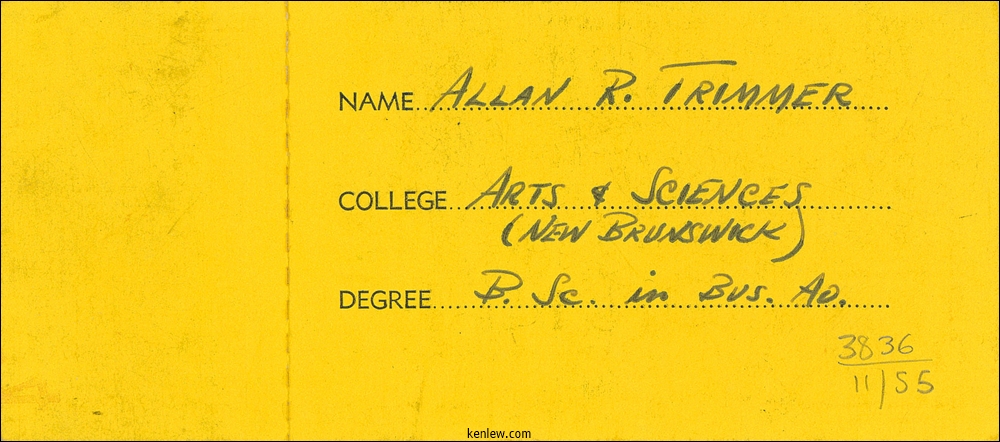 NAME ALLAN R. TRIMMER
COLLEGE ARTS & SCIENCES
(NEW BRUNSWICK)
DEGREE B. Sc. in BUS. AD.
3836
11/55
kenlew.com